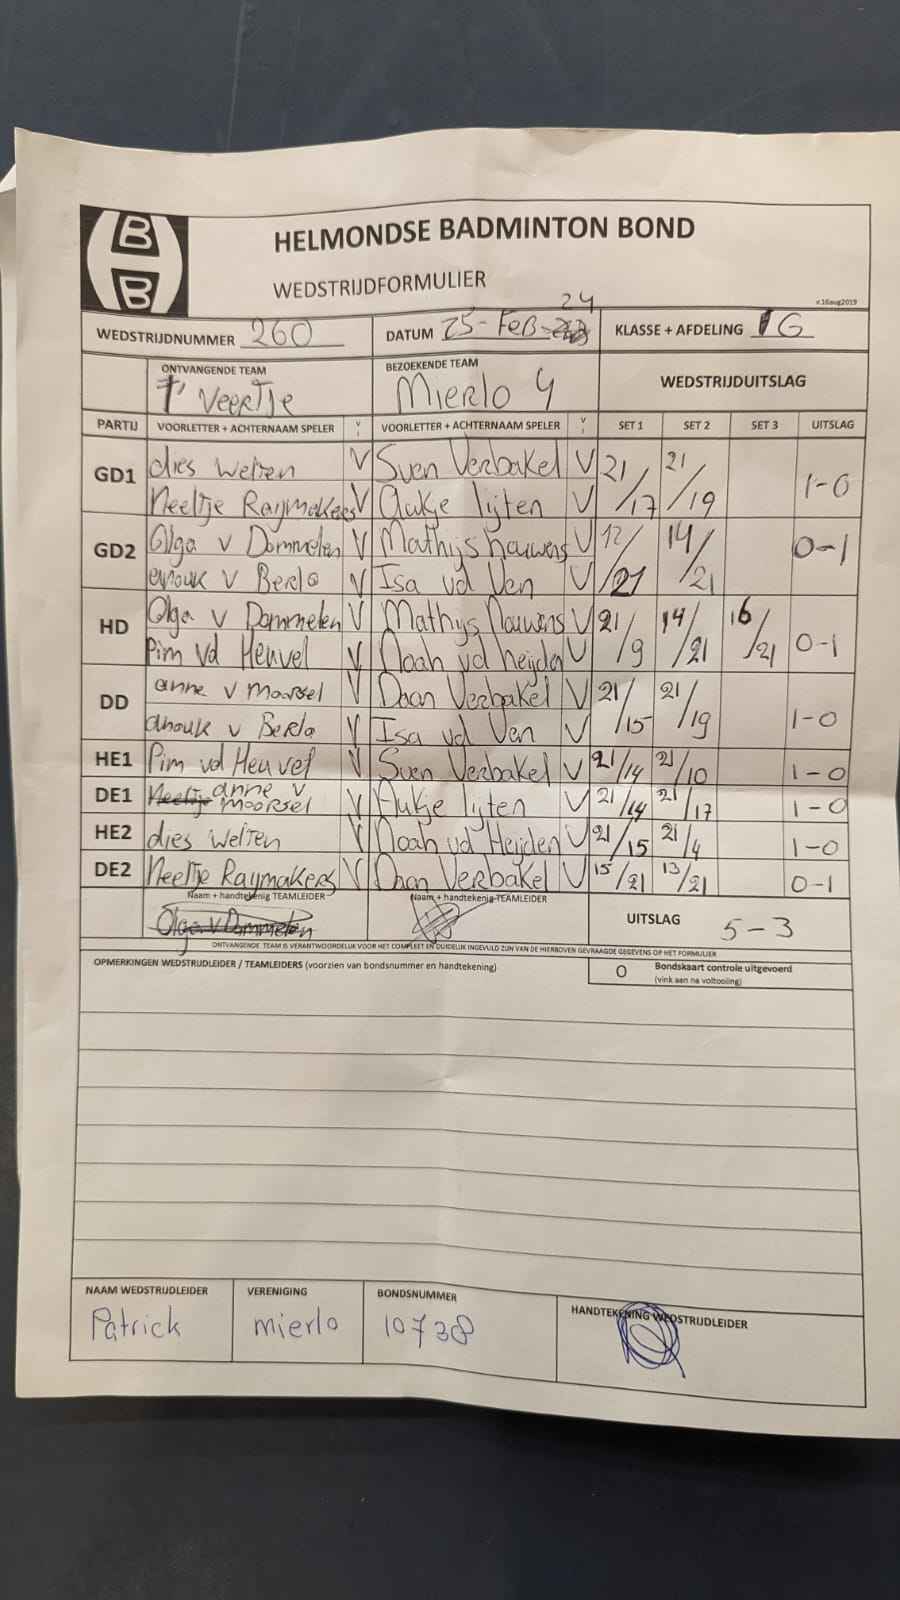 B
B
HELMONDSE BADMINTON BOND
WEDSTRIJDFORMULIER
v.16aug2019
WEDSTRIJDNUMMER 260 DATUM 25-FEB- 24 KLASSE + AFDELING G
ONTVANGENDE TEAM BEZOEKENDE TEAM WEDSTRIJDUITSLAG
't Veertje Mierlo 4
PARTIJ VOORLETTER + ACHTERNAAM SPELER V VOORLETTER + ACHTERNAAM SPELER V SET 1 SET 2 SET 3 UITSLAG
GD1 dies Welten V Sven Verbakel V 21/17 21/19 1-0
Neeltje Raymakers V Aukje lijten V
GD2 Olga v Dommelen V Mathijs Nouwens V 12/21 14/21 0-1
anouk v Berlo V Isa vd Ven V
HD Olga v Dommelen V Mathys Nouwens V 21/9 14/21 16/21 0-1
Pim vd Heuvel V Noah vd heijden V
DD anne v moorsel V Daan Verbakel V 21/15 21/19 1-0
anouk v Berlo V Isa vd Ven V
HE1 Pim vd Heuvel V Sven Verbakel V 21/14 21/10 1-0
DE1 Neeltje anne v moorsel V Aukje lijten V 21/14 21/17 1-0
HE2 dies Welten V Noah vd Heijden V 21/15 21/4 1-0
DE2 Neeltje Raymakers V Daan Verbakel V 15/21 13/21 0-1
Naam + handtekenig TEAMLEIDER Naam + handtekenig TEAMLEIDER
Olga v Dommelen UITSLAG 5-3
ONTVANGENDE TEAM IS VERANTWOORDELIJK VOOR HET COMPLEET EN DUIDELIJK INGEVULD ZIJN VAN DE HIERBOVEN GEVRAAGDE GEGEVENS OP HET FORMULIER
OPMERKINGEN WEDSTRIJDLEIDER / TEAMLEIDERS (voorzien van bondsnummer en handtekening) O Bondskaart controle uitgevoerd
(vink aan na voltooiing)
NAAM WEDSTRIJDLEIDER VERENIGING BONDSNUMMER HANDTEKENING WEDSTRIJDLEIDER
Patrick mierlo 10738